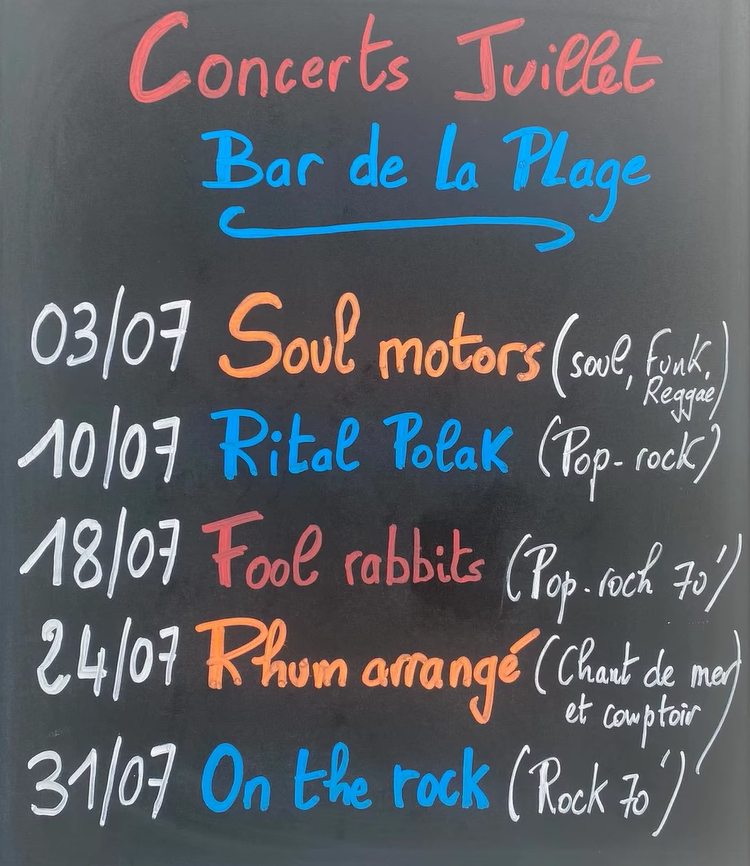 Concerts Juillet
Bar de la Plage
03/07 Soul motors (soul, Funk,
Reggae)
10/07 Rital Polak (Pop-rock)
18/07 Fool rabbits (Pop-roch 70')
24/07 Rhum arrangé (Chant de mer
et comptoir)
31/07 On the rock (Rock 70')